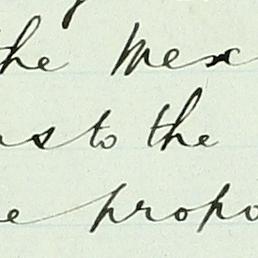 the Mex
as to the
e propo